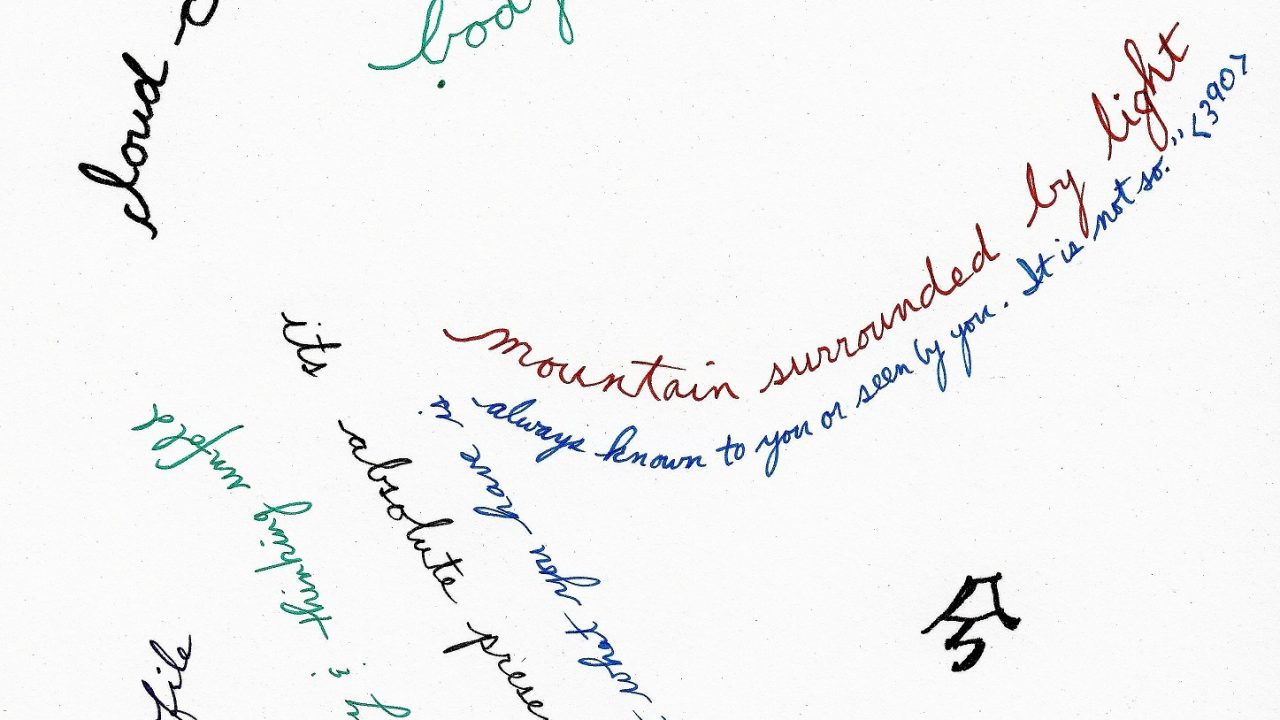 cloud
body
mountain surrounded by light
always known to you or seen by you. It is not so." <390>
its absolute prese
what you have is
thinking unfold
file